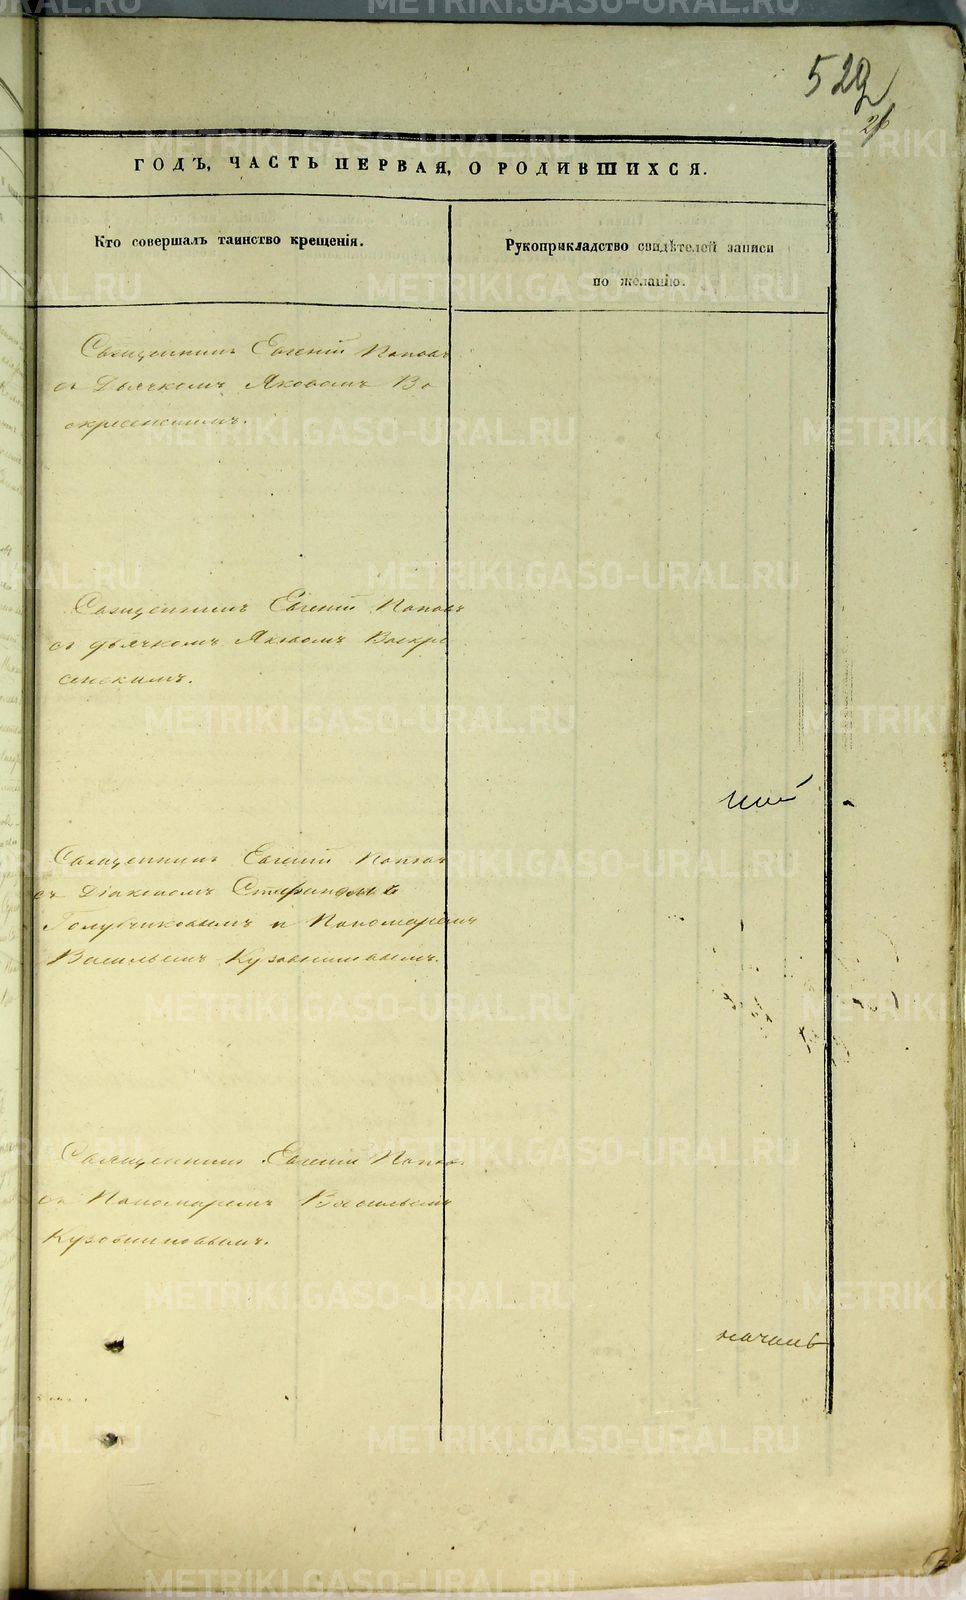 529
ГОДЪ, ЧАСТЬ ПЕРВАЯ, О РОДИВШИХСЯ.
Кто совершалъ таинство крещенія.
Рукоприкладство свидѣтелей записи
по желанію.
Священникъ Евгеній Поповъ
съ Дьячкомъ Яковомъ Во
скресенскимъ.
Священникъ Евгеній Поповъ
съ дьячкомъ Яковомъ Воскре
сенскимъ.
Священникъ Евгеній Поповъ
съ Діакономъ Стефаномъ
Голубчиковымъ и Пономаремъ
Васильемъ Кузовниковымъ.
Священникъ Евгеній Поповъ
съ Пономаремъ Васильемъ
Кузовниковымъ.
METRIKI.GASO-URAL.RU